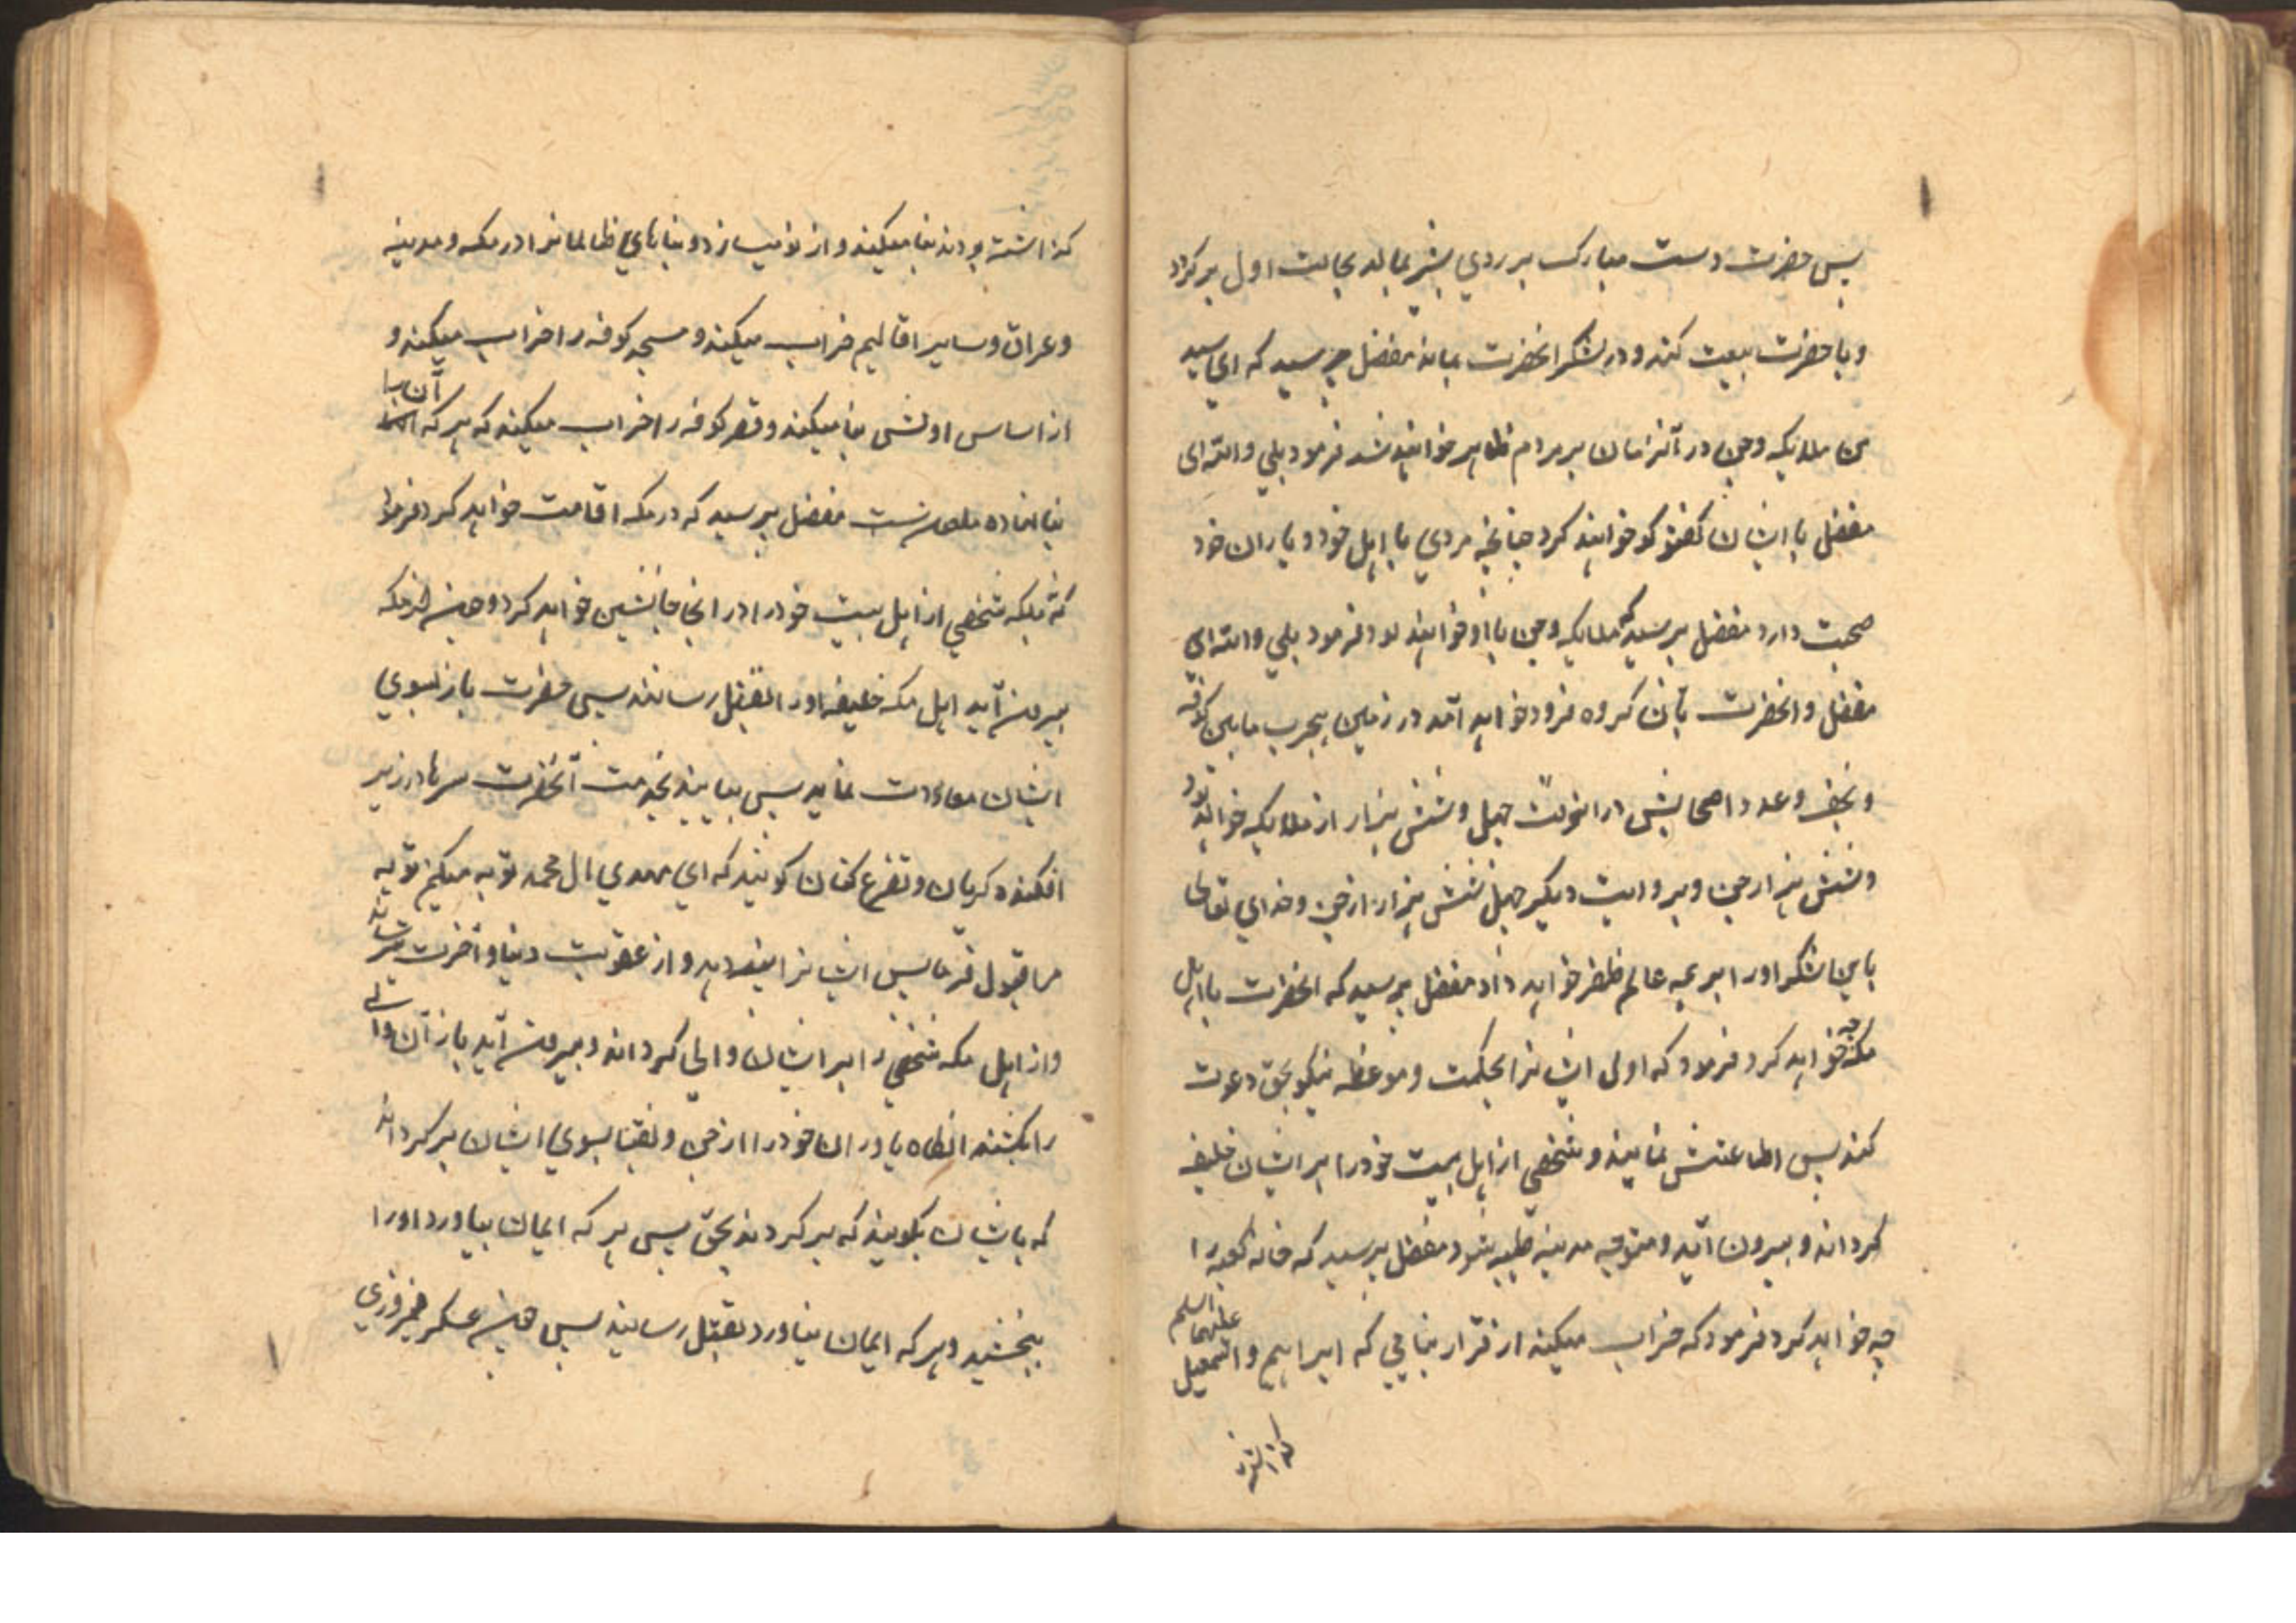 پس حضرت دست مبارک بر روي بشیر بمالد بحالت اول برکردد
و با حضرت بیعت کند و در لشکر انحضرت بماند مفضل پرسید که اي سید
من ملایکه و جن در آنزمان بر مردم ظاهر خواهند شد فرمود بلي والله اي
مفضل با ایشان کفتکو خواهند کرد چنانچه مردي با اهل خود و یاران خود
صحبت دارد مفضل پرسید که ملایکه و جن با او خواهند بود فرمود بلي والله اي
مفضل و انحضرت با آن کروه فرود خواهد آمد در زمین هجرت مابین کوفه
و نجف و عدد اصحابش در انوقت چهل و شش هزار از ملایکه خواهد بود
و شش هزار جن و بروایت دیکر چهل شش هزار از جن و خداي تعالی
باین لشکر او را بر همه عالم ظفر خواهد داد مفضل پرسید که انحضرت با اهل
مکه چه خواهد کرد فرمود که اول ایشانرا بحکمت و موعظه نیکو بحق دعوت
کند پس اطاعتش نمایند و شخصي از اهل بیت خود را بر ایشان خلیفه
کرداند و بیرون آید و متوجه مدینه طیبه شود مفضل پرسید که خانه کعبه را
چه خواهد کرد فرمود که خراب میکند از قرار بنایي که ابراهیم و اسمعیل علیهما السلم
کذاشته
کذاشته بودند بنا میکند و از نو میسازد و بناهاي ظالمانرا در مکه و مدینه
و عراق و سایر اقالیم خراب میکند و مسجد کوفه را خراب میکند و
از اساس اولش بنا میکند و قصر کوفه را خراب میکند که هر که آن را
بنا نهاده ملعونست مفضل پرسید که در مکه اقامت خواهد کرد فرمود
نه بلکه شخصي از اهل بیت خود را در انجا جانشین خواهد کرد و چون از مکه
بیرون آید اهل مکه خلیفه او را بقتل رسانند پس حضرت باز بسوي
ایشان معاودت نماید پس بیایند بخدمت آنحضرت سرها در زیر
افکنده کریان و تضرع کنان کویند که اي مهدي ال محمد توبه میکنم توبه
ما قبول فرما پس ایشانرا پند دهد و از عقوبت دنیا و آخرت بترساند
و از اهل مکه شخصي را بر ایشان والي کرداند و بیرون آید باز آن والي
را بکشند انکاه یاوران خود را از جن و نقبا بسوي ایشان برکرداند
که باایشان بکویند که برکردند بحق پس هر که ایمان بیاورد او را
ببخشید و هر که ایمان نیاورد بقتل رسانید پس چون عسکر فیروزي